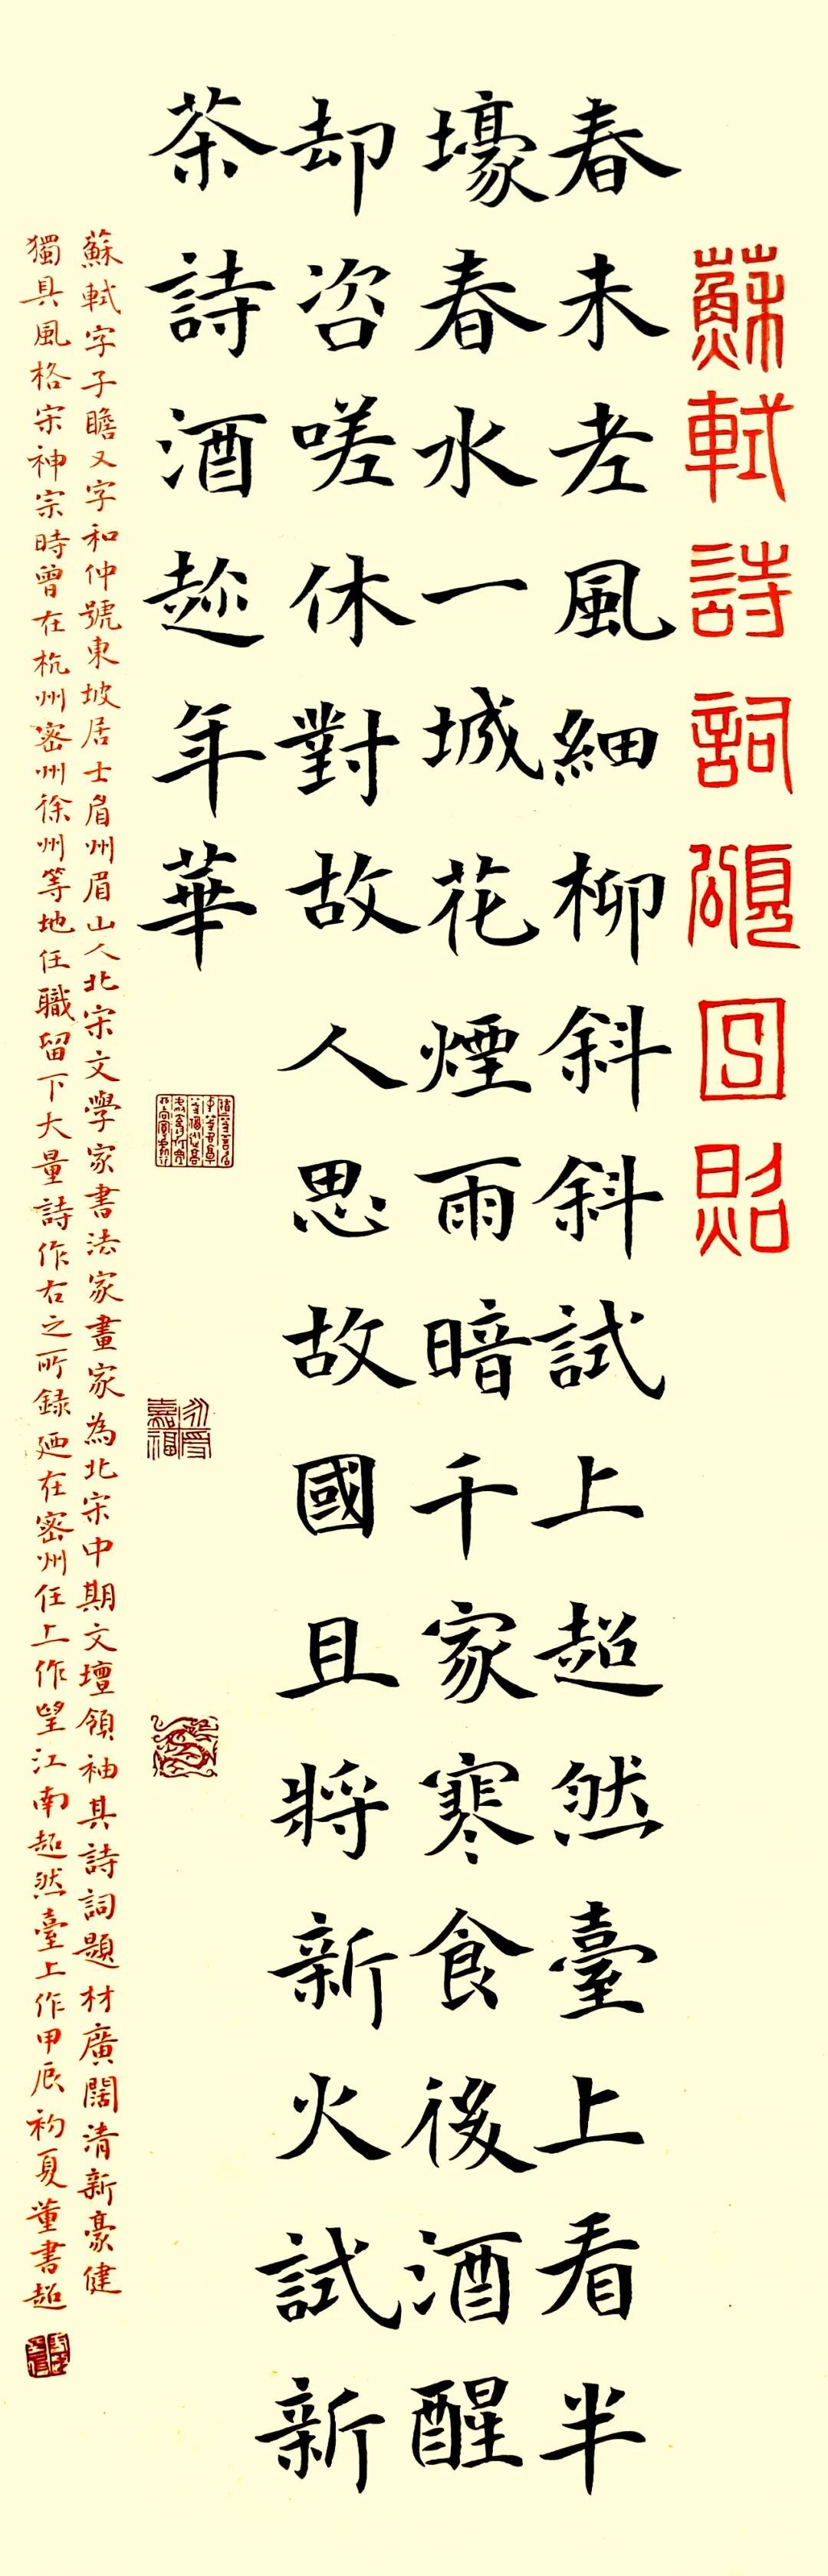 蘇軾詩詞
春未老風細柳斜斜試上超然臺上看半
壕春水一城花煙雨暗千家寒食後酒醒
却咨嗟休對故人思故國且將新火試新
茶詩酒趂年華
永受嘉福
蘇軾字子瞻又字和仲號東坡居士眉州眉山人北宋文學家書法家畫家為北宋中期文壇領袖其詩詞題材廣闊清新豪健
獨具風格宋神宗時曾在杭州密州徐州等地任職留下大量詩作右之所録廼在密州任上作望江南超然臺上作甲辰初夏董書超